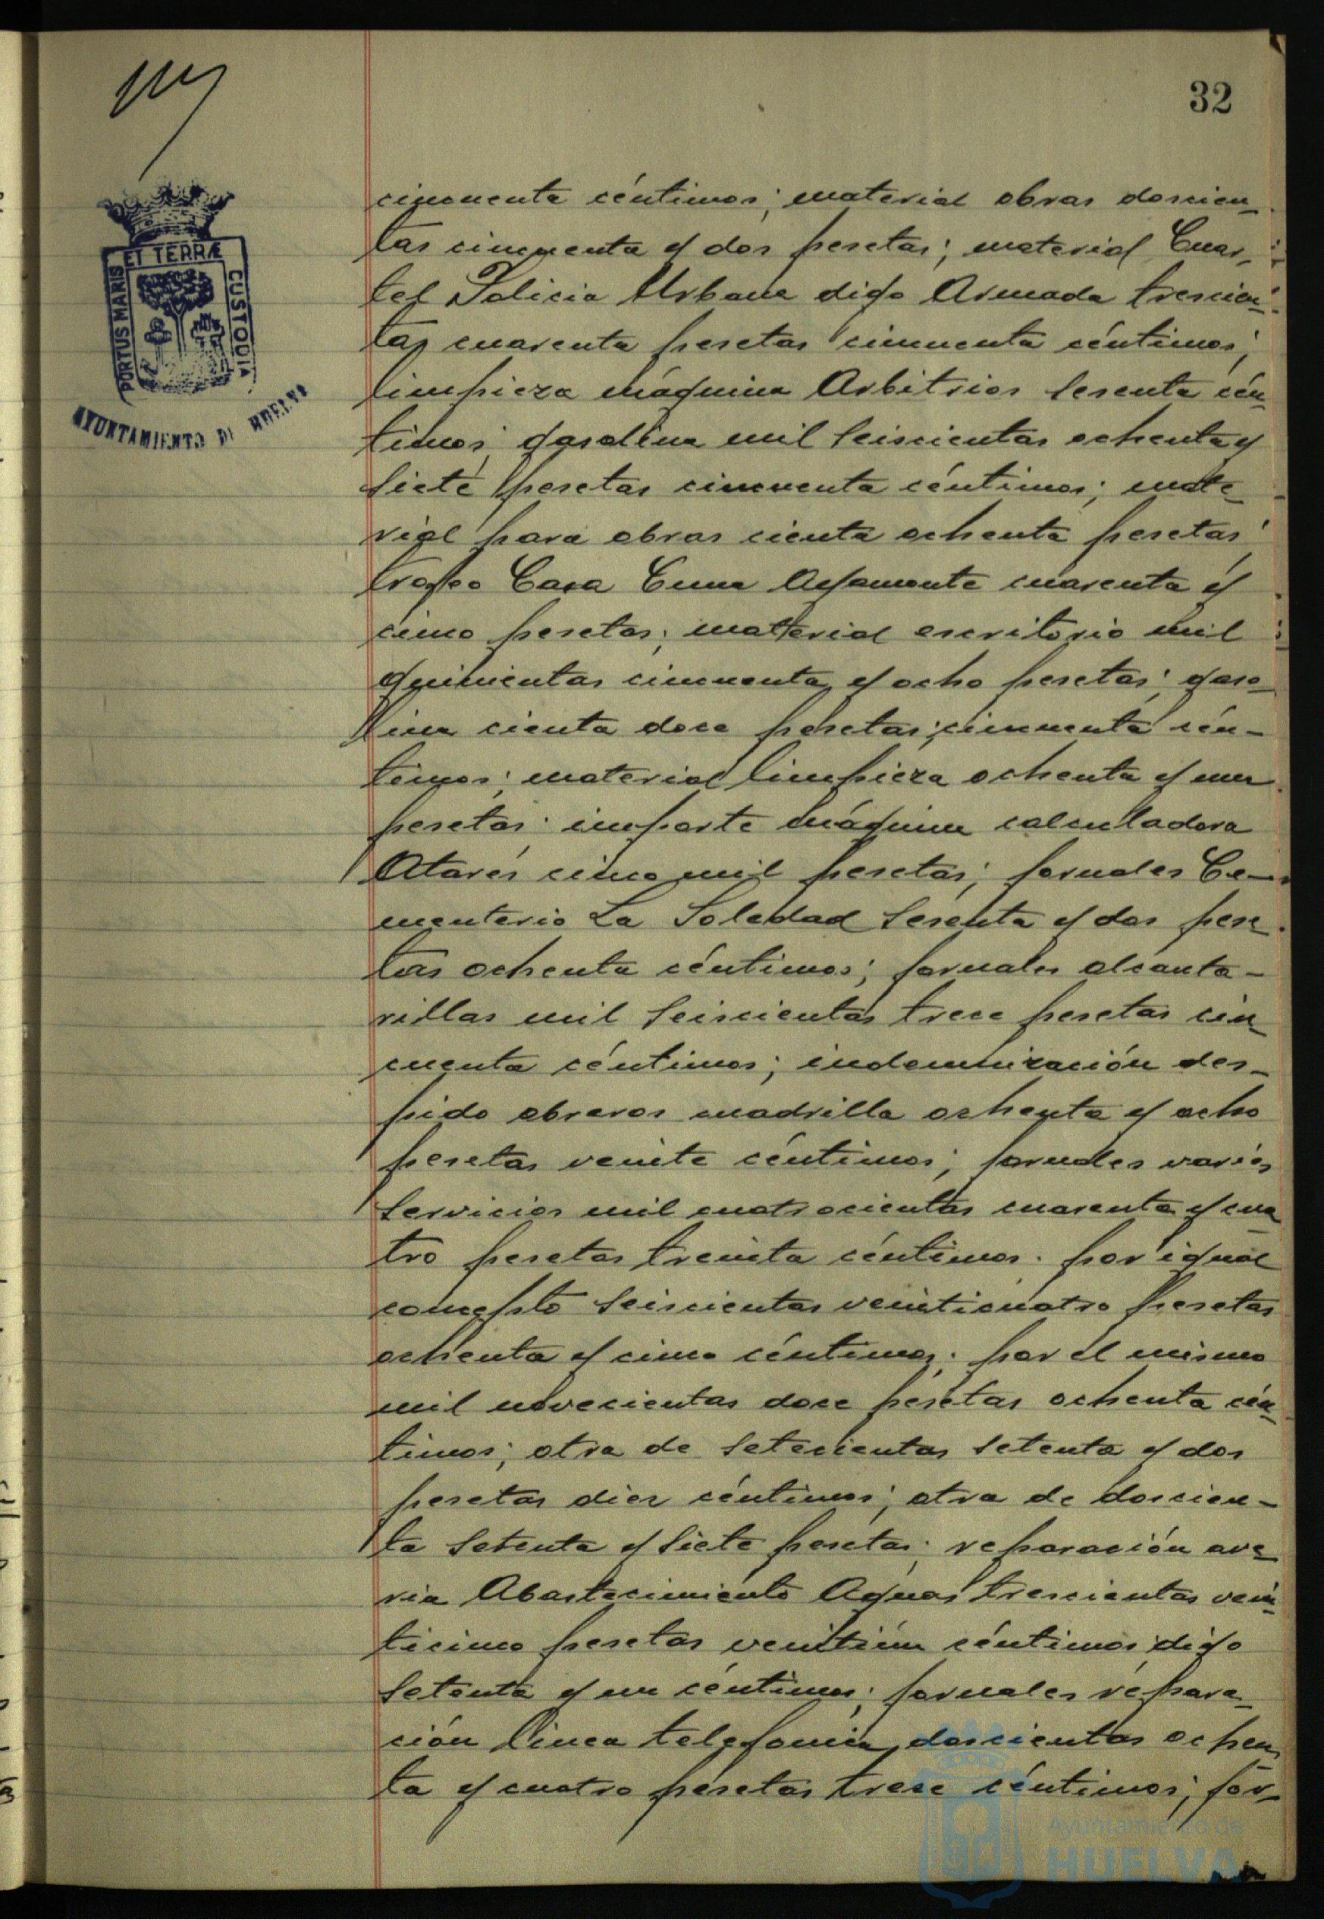 32
PORTUS MARIS ET TERRÆ CUSTODIA
AYUNTAMIENTO DE HUELVA
cincuenta céntimos; material obras doscien-
tas cincuenta y dos pesetas; material Cuar-
tel Policia Urbana digo Armada trescien-
tas cuarenta pesetas cincuenta céntimos;
limpieza máquina Arbitrios sesenta cén-
timos; gasolina mil seiscientas ochenta y
siete pesetas cincuenta céntimos; mate-
rial para obras ciento ochenta pesetas;
Casa Cuna Ayamonte cuarenta y
cinco pesetas; material escritorio mil
quinientas cincuenta y ocho pesetas; gaso-
lina ciento doce pesetas; cincuenta cén-
timos; material limpieza ochenta y una
pesetas; importe máquina calculadora
Atarés cinco mil pesetas; jornales Ce-
menterio La Soledad sesenta y dos pese-
tas ochenta céntimos; jornales alcanta-
rillas mil seiscientas trece pesetas cin-
cuenta céntimos; indemnización des-
pido obreros cuadrilla ochenta y ocho
pesetas veinte céntimos; jornales varios
servicios mil cuatrocientas cuarenta y cua
tro pesetas treinta céntimos; por igual
concepto seiscientas veinticuatro pesetas
ochenta y cinco céntimos; por el mismo
mil novecientas doce pesetas ochenta cén-
timos; otra de setecientas setenta y dos
pesetas diez céntimos; otra de doscien-
ta setenta y siete pesetas; reparación ave-
ria Abastecimiento Aguas trescientas vein-
ticinco pesetas veintiún céntimos digo
setenta y un céntimos; jornales repara-
ción linea telefonica doscientas ochen-
ta y cuatro pesetas trece céntimos; jor-
Ayuntamiento de
HUELVA